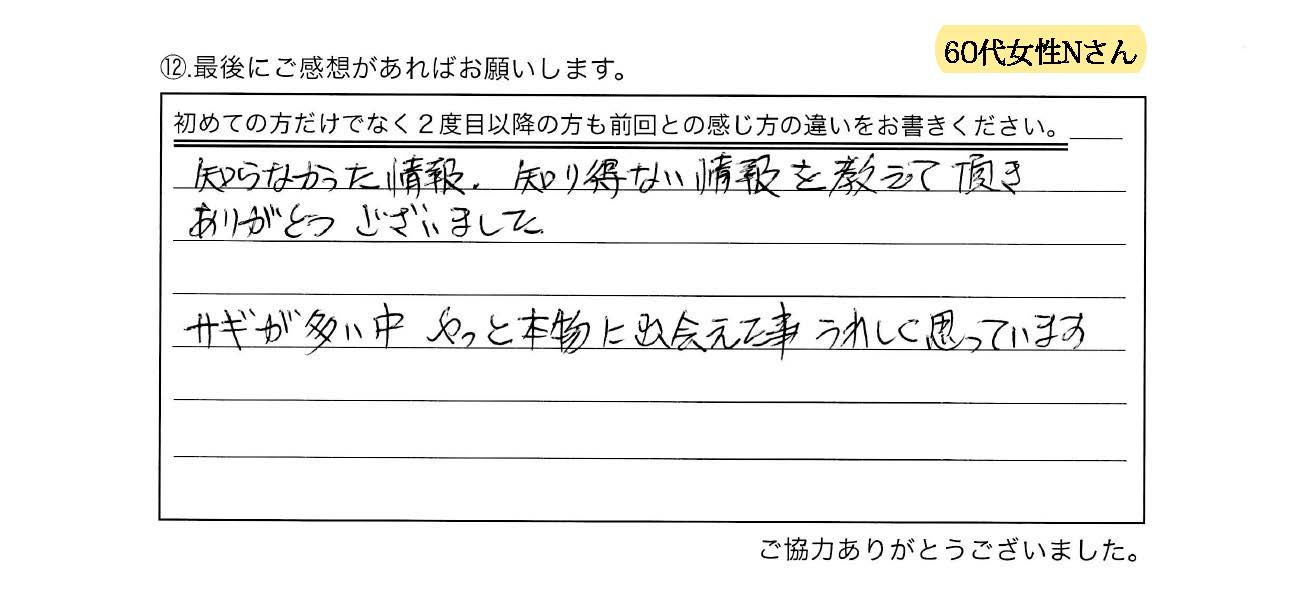 60代女性Nさん
⑫.最後にご感想があればお願いします。
初めての方だけでなく２度目以降の方も前回との感じ方の違いをお書きください。
知らなかった情報、知り得ない情報を教えて頂き
ありがとうございました。
サギが多い中 やっと本物に出会えた事 うれしく思っています
ご協力ありがとうございました。